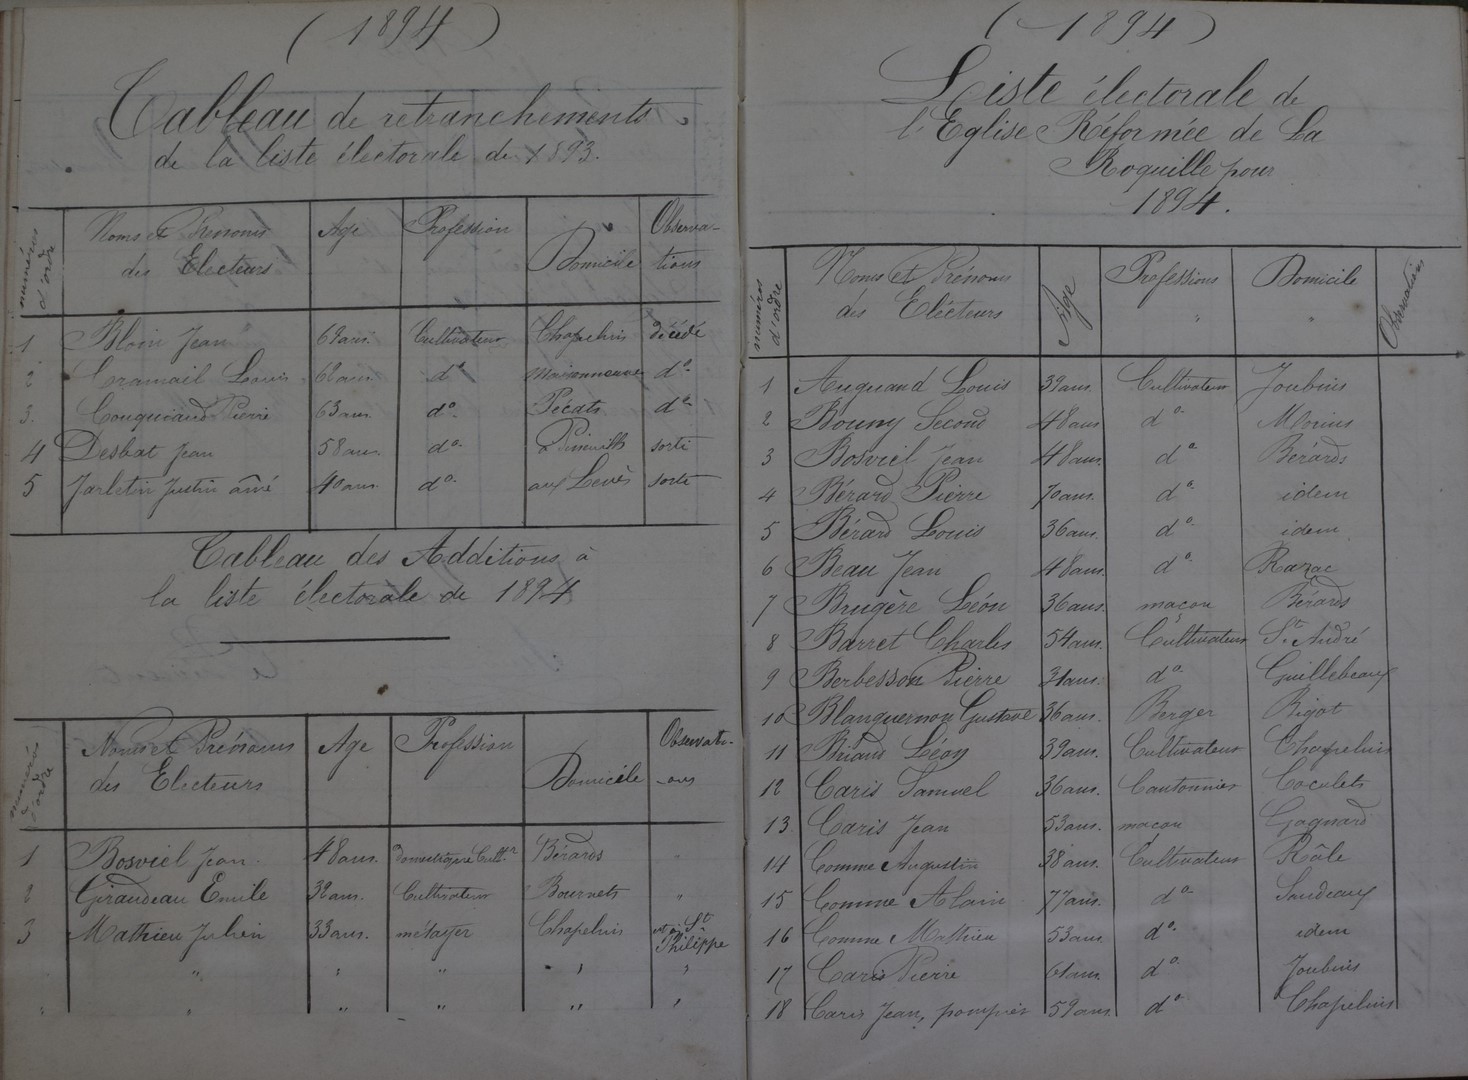 (1894)
Tableau de retranchements
de la liste électorale de 1893.
numéros d'ordre Noms et Prénoms des Electeurs Age Profession Domicile Observations
1 Blouin Jean 69 ans. Cultivateur Chapelains décédé
2. Cramail Louis 62 ans. do Maisonneuve do
3. Couquiaud Pierre 63 ans. do Pécats do
4 Desbat Jean 58 ans. do sorti
5 Jarletin Justin aîné 40 ans. do aux Levès sorti
Tableau des Additions à
la liste électorale de 1894
numéros d'ordre Noms et Prénoms des Electeurs Age Profession Domicile Observations
1 Bosviel Jean. 48 ans. Domestique Cultr Bérards "
2 Giraudeau Emile 32 ans. Cultivateur Bournets "
3 Mathieu Julien 33 ans. métayer Chapelains St Philippe
" " " " "
" " " " " "
(1894)
Liste électorale de
l'Eglise Réformée de La
Roquille pour
1894.
numéros d'ordre Noms et Prénoms des Electeurs Age Professions Domicile Observations
1 Auguand Louis 39 ans. Cultivateur Joubins
2 Bouny Second 48 ans do Monins
3 Bosviel Jean 48 ans. do Bérards
4 Bérard Pierre 70 ans. do idem
5 Bérard Louis 36 ans. do idem
6 Beau Jean 48 ans. do Razac
7 Brugère Léon 36 ans. maçon Bérards
8 Barret Charles 54 ans. Cultivateur St. André
9 Berbesson Pierre 31 ans. do Guillebeaux
10 Blanquernon Gustave 36 ans. Berger Bigot
11 Briaud Léon 39 ans. Cultivateur Chapelains
12 Caris Samuel 36 ans. Cantonnier Coculets
13 Caris Jean 53 ans. maçon Gagnard
14 Comme Augustin 38 ans. Cultivateur Râle
15 Comme Alain 77 ans. do
16 Comme Mathieu 53 ans. do idem
17 Caris Pierre 61 ans. do Joubins
18 Caris Jean, pompier 59 ans. do Chapelains